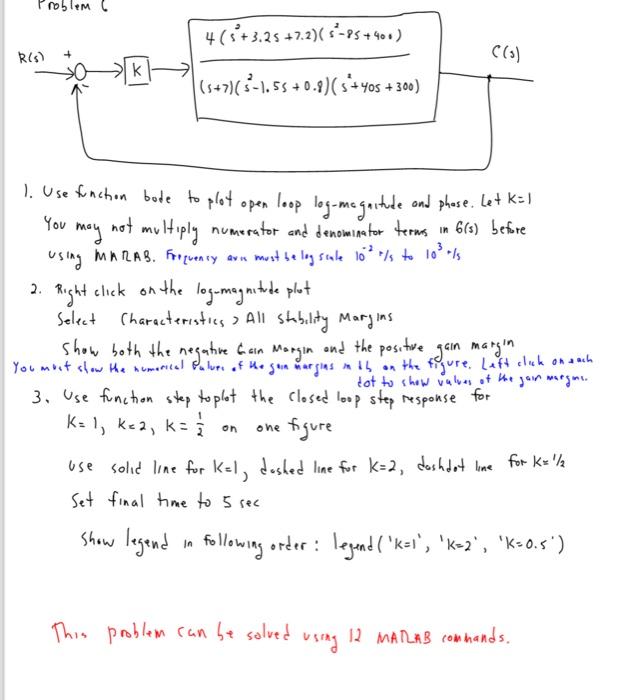 Problem 6
4(s²+3.2s+7.2)(s²-8s+400)
R(s) + K C(s)
(s+7)(s²-1.5s+0.8)(s²+40s+300)
-
1. Use function bode to plot open loop log-magnitude and phase. Let K=1
You may not multiply numerator and denominator terms in G(s) before
using MATLAB. Frequency axis must be log scale 10⁻² r/s to 10³ r/s
2. Right click on the log-magnitude plot
Select Characteristics > All Stability Margins
Show both the negative Gain Margin and the positive gain margin
You must show the numerical values of the gain margins in db on the figure. Left click on each
dot to show values of the gain margins.
3. Use function step to plot the closed loop step response for
K=1, K=2, K=1/2 on one figure
Use solid line for K=1, dashed line for K=2, dashdot line for K=1/2
Set final time to 5 sec
Show legend in following order: legend('K=1', 'K=2', 'K=0.5')
This problem can be solved using 12 MATLAB commands.